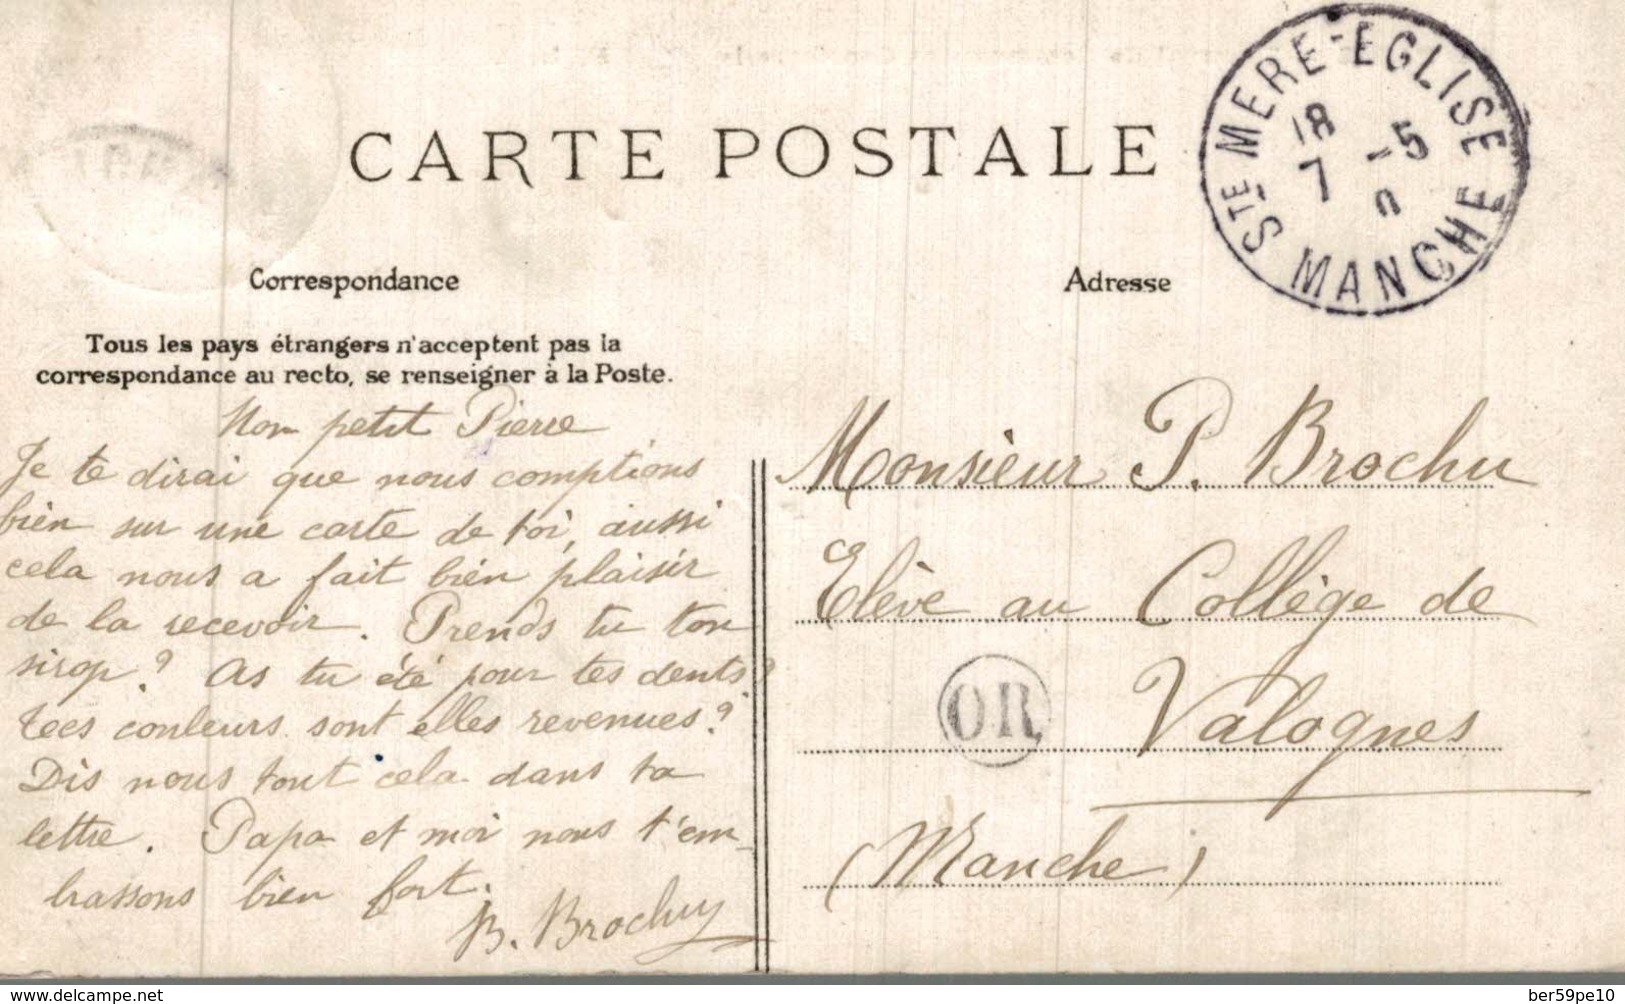 CARTE POSTALE
STE MERE-EGLISE
18 -5
7
MANCHE
Correspondance
Adresse
Tous les pays étrangers n'acceptent pas la
correspondance au recto, se renseigner à la Poste.
Mon petit Pierre
Je te dirai que nous comptions
bien sur une carte de toi, aussi
cela nous a fait bien plaisir
de la recevoir. Prends tu ton
sirop? As tu été pour tes dents?
tes couleurs sont elles revenues?
Dis nous tout cela dans ta
lettre. Papa et moi nous t'em-
brassons bien fort.
B. Brochu
Monsieur P. Brochu
Elève au Collège de
OR
Valognes
(Manche)
delcampe.net
ber59pe10